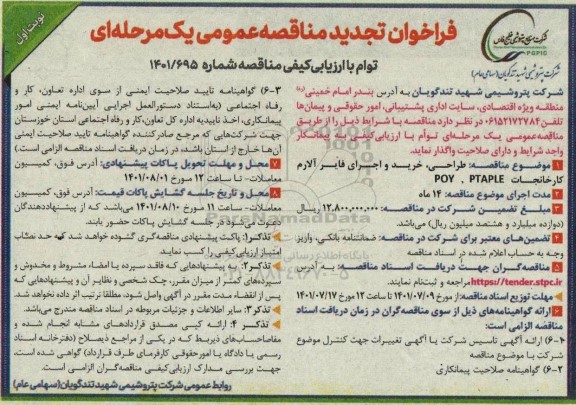 نوبت اول
فراخوان تجدید مناقصه عمومی یک مرحله‌ای
توام با ارزیابی کیفی مناقصه شماره ۱۴۰۱/۶۹۵
شرکت پتروشیمی شهید تندگویان (سهامی عام)
PGPIC
شرکت پتروشیمی شهید تندگویان به آدرس بندر امام خمینی (ره)
منطقه ویژه اقتصادی، سایت اداری پشتیبانی، امور حقوقی و پیمان‌ها
تلفن ۰۶۱۵۲۱۷۲۷۸۴ در نظر دارد مناقصه با شرایط ذیل را از طریق
مناقصه عمومی یک مرحله‌ای توام با ارزیابی کیفی به پیمانکار
واجد شرایط و دارای صلاحیت واگذار نماید.
۱ موضوع مناقصه: طراحی، خرید و اجرای فایر آلارم
کارخانجات POY ، PTAPLE
۲ مدت اجرای موضوع مناقصه: ۱۴ ماه
۳ مبلغ تضمین شرکت در مناقصه: ۱۲.۸۰۰.۰۰۰.۰۰۰ ریال
(دوازده میلیارد و هشتصد میلیون ریال) می‌باشد.
۴ تضمین‌های معتبر برای شرکت در مناقصه: ضمانتنامه بانکی، واریز
وجه به حساب اعلام شده در اسناد مناقصه
۵ مناقصه‌گران جهت دریافت اسناد مناقصه: به آدرس
https://tender.stpc.ir مراجعه و ثبت‌نام نمایند.
مهلت توزیع اسناد مناقصه: از مورخ ۱۴۰۱/۰۷/۰۹ تا ساعت ۱۲ مورخ ۱۴۰۱/۰۷/۱۷
۶ ارائه گواهینامه‌های ذیل از سوی مناقصه‌گران در زمان دریافت اسناد
مناقصه الزامی است:
۶-۱ ارائه آگهی تاسیس شرکت یا آگهی تغییرات جهت کنترل موضوع
شرکت با موضوع مناقصه
۶-۲ گواهینامه صلاحیت پیمانکاری
۶-۳ گواهینامه تایید صلاحیت ایمنی از سوی اداره تعاون، کار و
رفاه اجتماعی (به‌استناد دستورالعمل اجرایی آیین‌نامه ایمنی امور
پیمانکاری، اخذ تاییدیه اداره کل تعاون، کار و رفاه اجتماعی استان خوزستان
جهت شرکت‌هایی که مرجع صادرکننده گواهینامه تایید صلاحیت ایمنی
آن‌ها خارج از استان باشد، در زمان دریافت اسناد مناقصه الزامی است.)
۷ محل و مهلت تحویل پاکات پیشنهادی: آدرس فوق، کمیسیون
معاملات - تا ساعت ۱۲ مورخ ۱۴۰۱/۰۸/۰۱
۸ محل و تاریخ جلسه گشایش پاکات قیمت: آدرس فوق، کمیسیون
معاملات - ساعت ۱۱ مورخ ۱۴۰۱/۰۸/۱۰ می‌باشد که از پیشنهاددهندگان
دعوت می‌شود در جلسه گشایش پاکات حضور یابند.
تذکر۱: پاکت پیشنهادی مناقصه‌گری گشوده خواهد شد که حد نصاب
امتیاز ارزیابی کیفی را کسب نماید.
تذکر ۲: به پیشنهادهایی که فاقد سپرده یا امضاء مشروط و مخدوش و
سپرده‌های کمتر از میزان مقرر، چک شخصی و نظایر آن و پیشنهادهایی که
پس از انقضاء مدت مقرر در آگهی واصل شود، مطلقا ترتیب اثر داده نخواهد شد.
تذکر ۳: سایر اطلاعات و جزئیات مربوطه در اسناد مناقصه مندرج می‌باشد.
تذکر ۴: ارائه کپی مصدق قراردادهای مشابه انجام شده و
مفاصاحساب‌های ذیربط که در یکی از مراجع ذیصلاح (دفترخانه اسناد
رسمی یا دادگاه یا امور حقوقی کارفرمای طرف قرارداد) گواهی شده است،
جهت بررسی مدارک ارزیابی کیفی مناقصه‌گران الزامی است.
روابط عمومی شرکت پتروشیمی شهید تندگویان (سهامی عام)